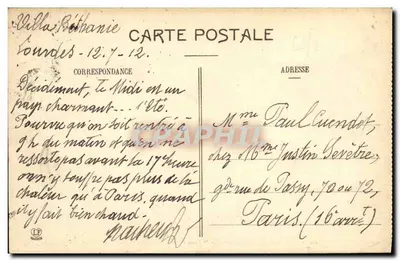 Villa Béthanie
Lourdes 12.7.12.
CARTE POSTALE
CORRESPONDANCE
ADRESSE
Décidément, le Midi est un
pays charmant... l'été.
Pourvu qu'on soit rentré à
9h du matin et qu'on ne
ressorte pas avant la 17e heure
on n'y souffre pas plus de la
chaleur qu'à Paris, quand
il y fait bien chaud.
Mme Paul Cuendet,
chez Mme Justin
gde rue de Passy, 70 ou 72,
Paris (16e arrt)
CPARAMA
LP